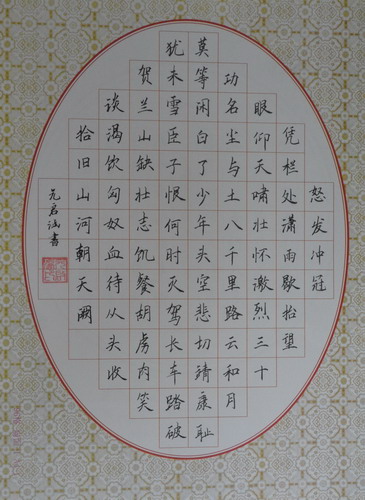 怒发冲冠
凭栏处潇雨歇抬望
眼仰天啸壮怀激烈三十
功名尘与土八千里路云和月
莫等闲白了少年头空悲切靖康耻
犹未雪臣子恨何时灭驾长车踏破
贺兰山缺壮志饥餐胡虏内笑
谈渴饮匈奴血待从头收
拾旧山河朝天阙